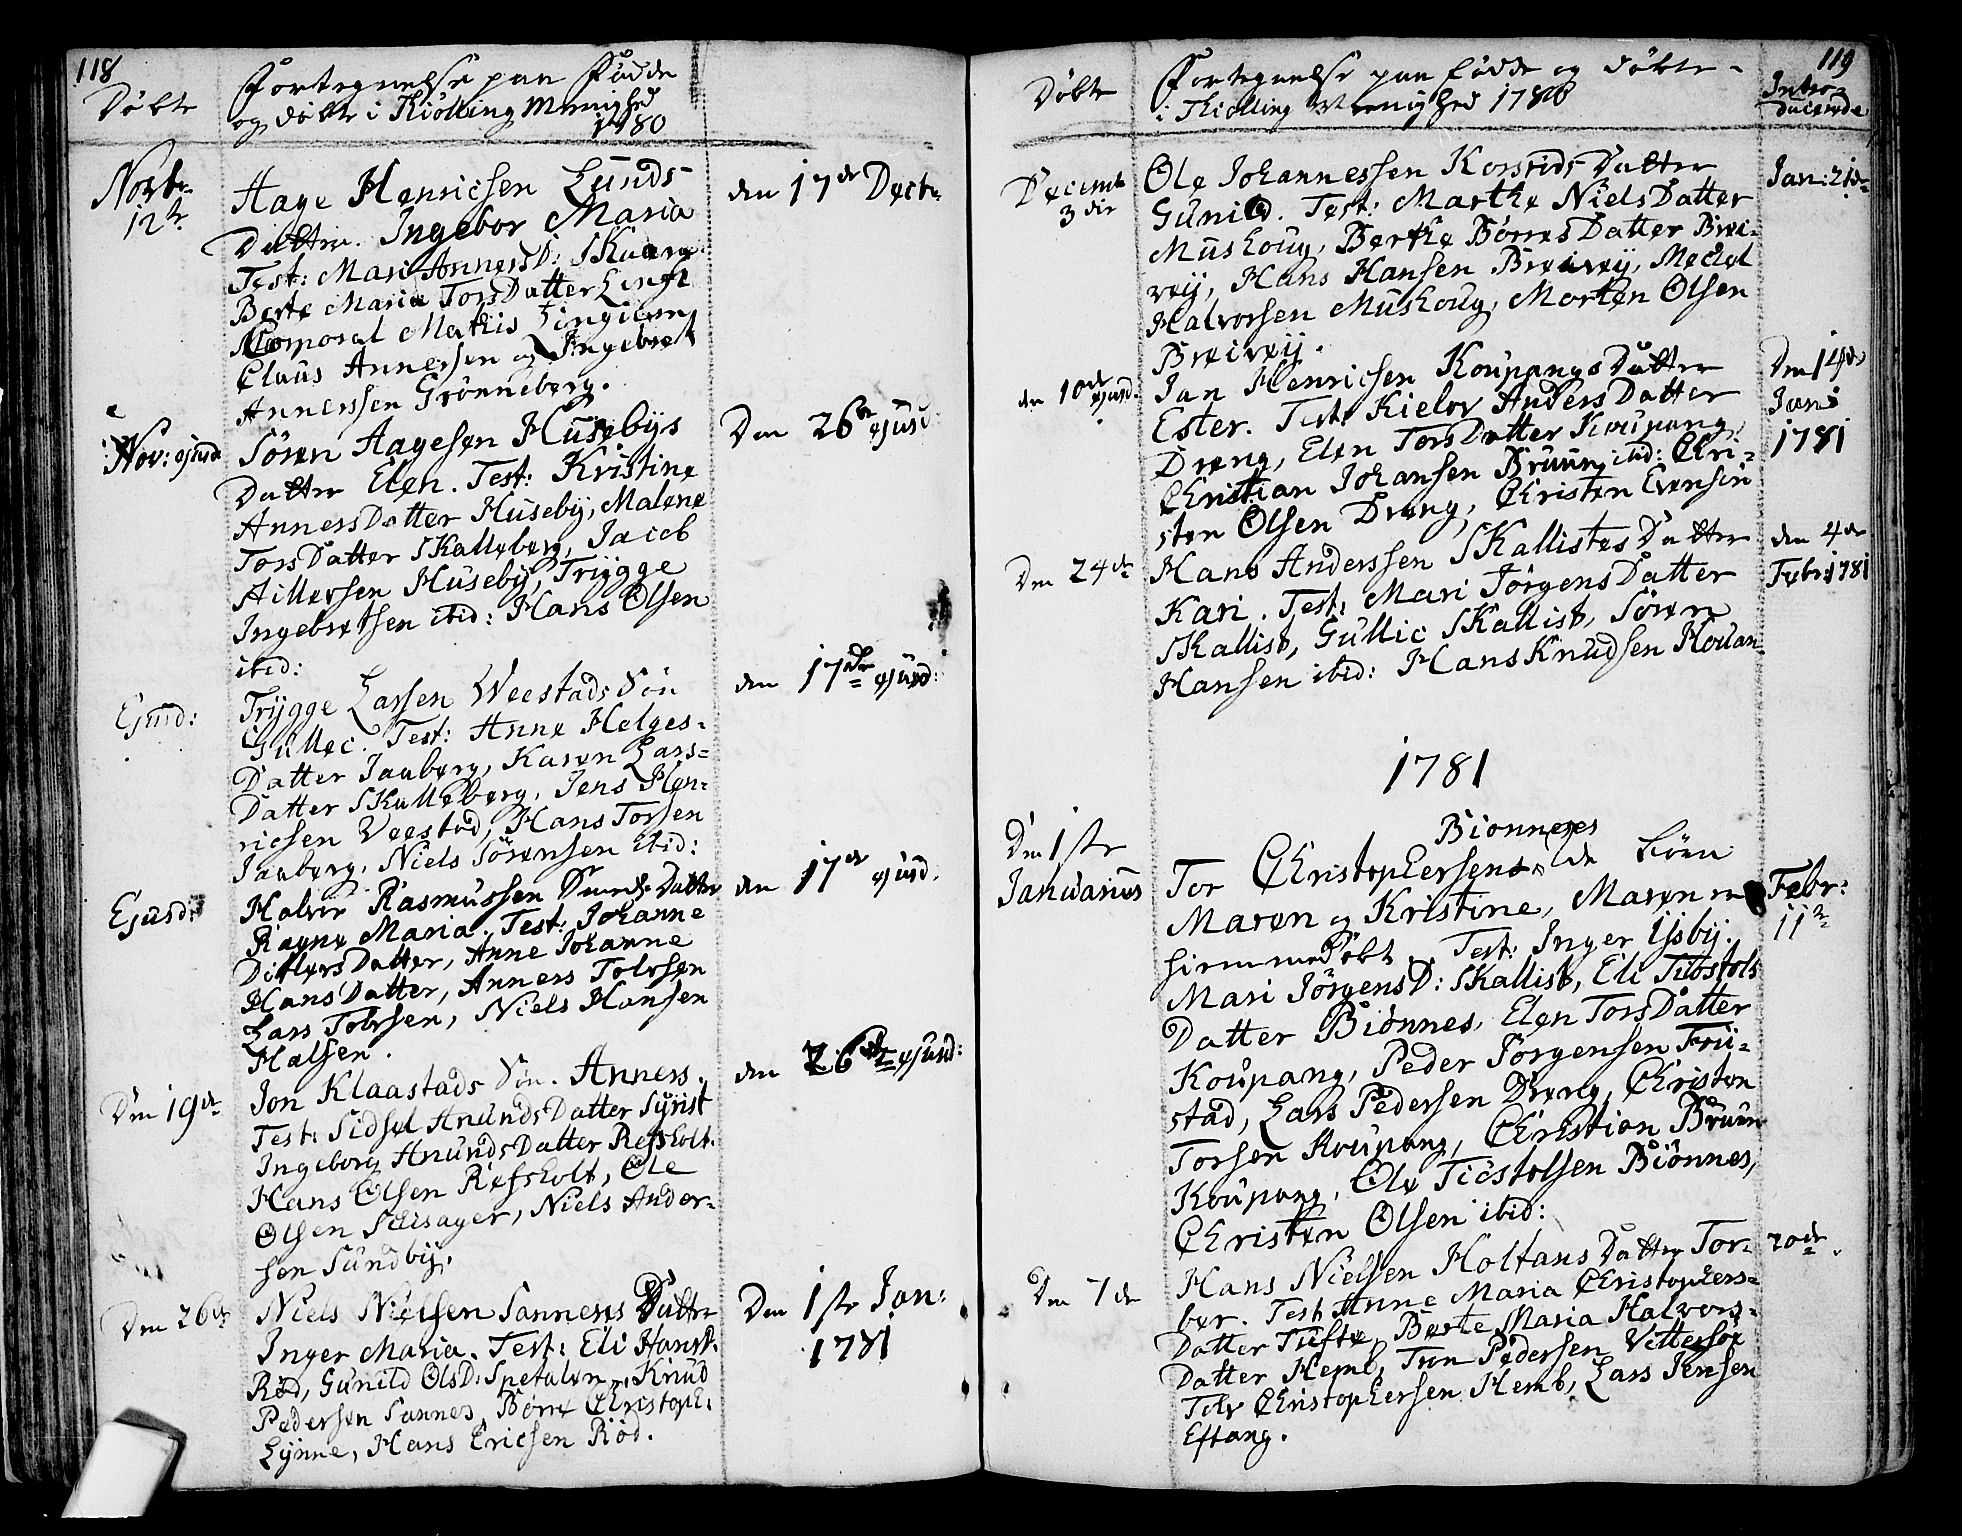 118
Døbte
Fortegnelse paa Fødde
og døbte i Thiølling Menighed
1780
Novbr.
12te
Aage Henricsen Lunds
Datter. Ingebor Maria
Test: Mari AnnersD: Skaare
Berte Maria TorsDatter
Corporal Mathis
Claus Annersen og Ingebret
Annerssen Grønneberg.
den 17de Decbr.
Nov: ejusd
Søren Aagesen Husebys
Datter Elen. Test: Kristine
AnnersDatter Huseby, Malene
TorsDatter Skalleberg, Jacob
Aillersen Huseby, Trygge
Ingebretsen ibid: Hans Olsen
ibid:
Den 26de ejusd
Ejusd:
Trygge Larsen Weestads Søn
Gullec. Test: Anne Helges-
Datter Jauberg, Karen Lars-
Datter Skalleberg, Jens Hen-
ricsen Veestad, Hans Torsen
Jauberg, Niels Sørensen ibid:
den 17de ejusd:
Ejusd:
Halvor Rasmussen Datter
Ragne Maria. Test: Johanne
DitlevsDatter, Anne Johanne
HansDatter, Anners Tolvsen
Lars Tolvsen, Niels Hansen
Halsen.
den 17de ejusd.
Den 19de
Jon Klaastads Søn. Anners.
Test: Sidsel AnundsDatter Syrist
Ingeborg AnundsDatter Refsholt.
Hans Olsen Refsholt, Ole
Olsen Schisager, Niels Ander-
sen Sundby.
den 26de ejusd:
Den 26de
Niels Nielsen Sannes Datter
Inger Maria. Test: Eli
Rød, Gunild OlsD: Spetalen, Knud
Pedersen Sannes, Børre Christoph:
Lynne, Hans Ericsen Rød.
Den 1ste Jan:
1781
119
Døbte
Fortegnelse paa fødde og døbte
i Thiølling Menighed 1780
Intro-
ducerede
Decemb
3die
Ole Johannessen Korstids Datter
Gunild. Test: Marthe NielsDatter
Mushoug, Berthe BørresDatter Brei-
veij, Hans Hansen Breiveij, Mechel
Halvorsen Mushoug, Morten Olsen
Breiveij.
Jan: 21de
den 10de ejusd.
Jan Henricsen Koupangs Datter
Ester. Test: Kielov AndersDatter
Dreng, Elen TorsDatter Koupang,
Christian Johansen Bruun ibid: Chri-
sten Olsen Dreng, Christen Evensen
Den 14de
Jan:
1781
Den 24de
Hans Anderssen Skallistes Datter
Kari. Test: Mari JørgensDatter
Skallist, Gullic Skallist, Søren
Hansen ibid: Hans Knudsen Houan
den 4de
Febr: 1781
1781
Den 1ste
Januarius
Bionneses
Tor Christophersens Børn
Maren og Kristine, Maren
hiemmeDøbt. Test: Inger Ijsby.
Mari JørgensD: Skallist, Eli Tiostols
Datter Biønnes, Elen TorsDatter
Koupang, Peder Jørgensen Frii-
stad, Lars Pedersen Dreng, Christen
Torsen Koupang, Christian Bruun
Koupang, Ole Tiostolsen Biønnes,
Christen Olsen ibid:
Febr:
11te
Den 7de
Hans Nielsen Holtans Datter Tor-
bor. Test: Anne Maria Christophers-
Datter Tufte, Berte Maria Halvors-
Datter Hemb, Pedersen Vittersøe
Tolv Christophersen Hemb, Lars Jensen
Eftang.
20de